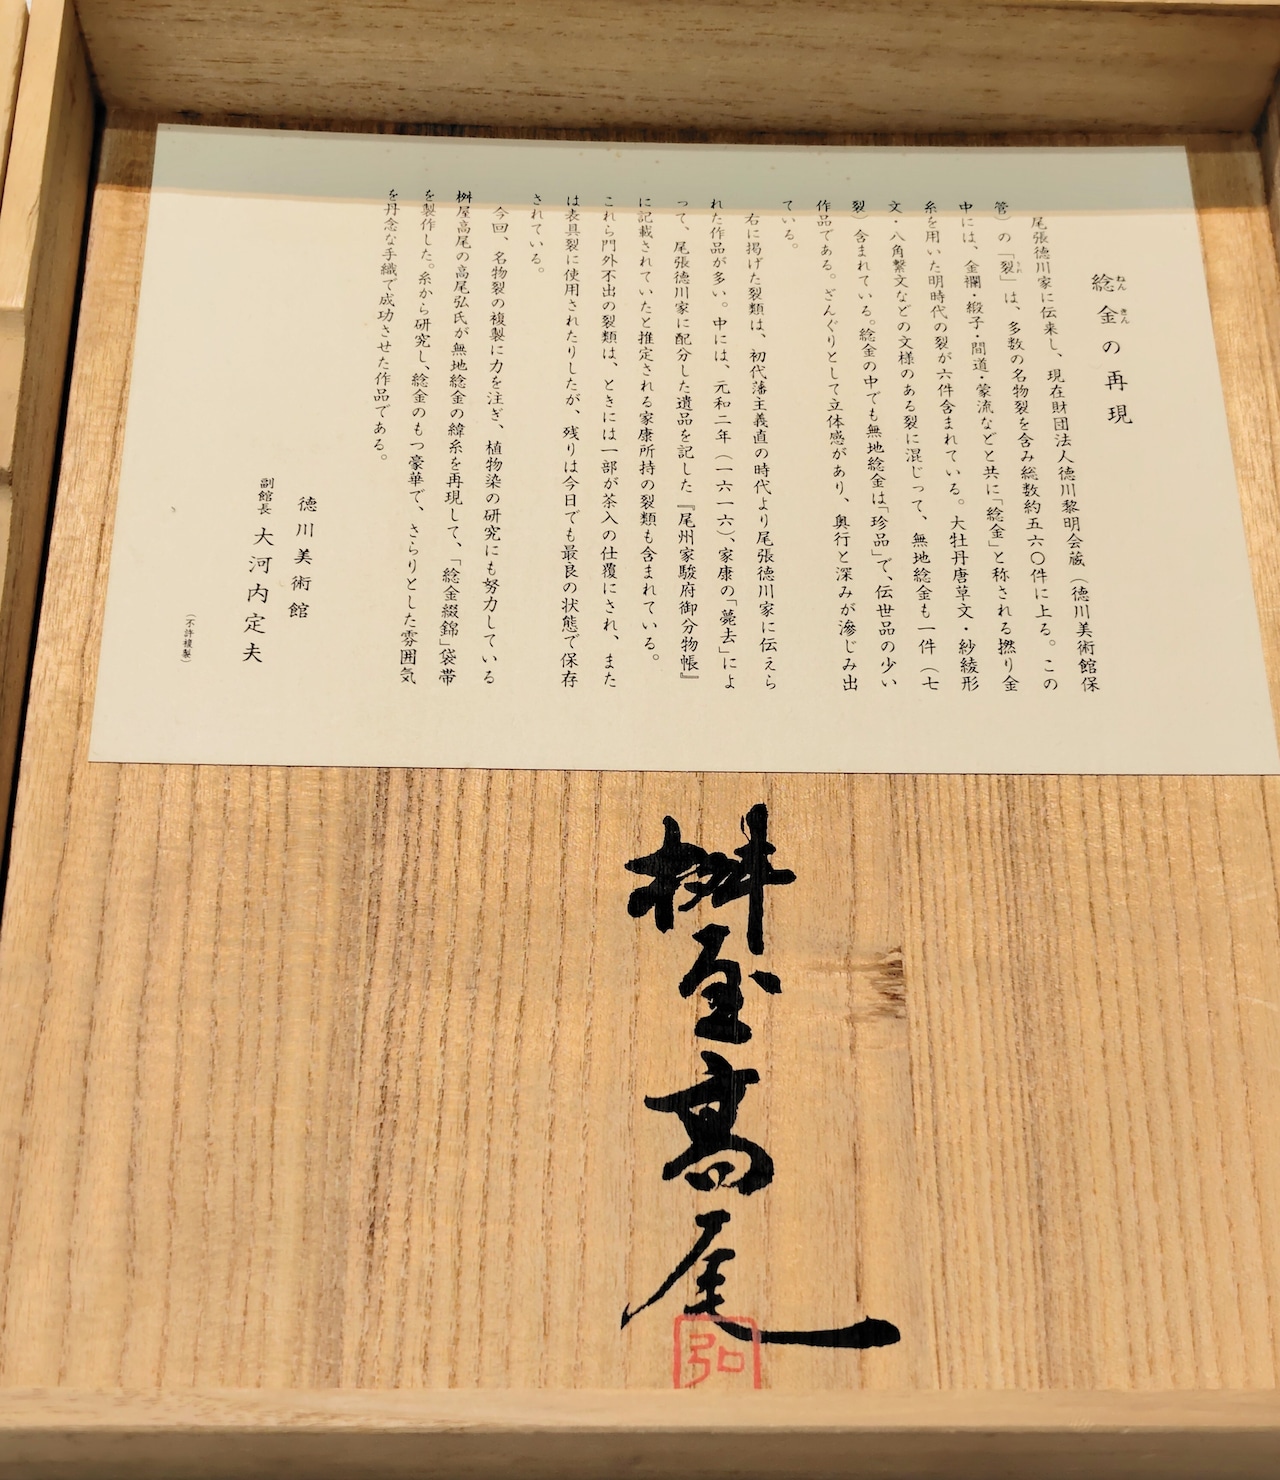 捻金の再現
尾張徳川家に伝来し、現在財団法人徳川黎明会蔵（徳川美術館保
管）の「裂」は、多数の名物裂を含み総数約五六〇件に上る。この
中には、金襴・緞子・間道・蒙流などと共に「捻金」と称される撚り金
糸を用いた明時代の裂が六件含まれている。大牡丹唐草文・紗綾形
文・八角繋文などの文様のある裂に混じって、無地捻金も一件（七
裂）含まれている。捻金の中でも無地捻金は「珍品」で、伝世品の少い
作品である。ざんぐりとして立体感があり、奥行と深みが滲じみ出
ている。
右に掲げた裂類は、初代藩主義直の時代より尾張徳川家に伝えら
れた作品が多い。中には、元和二年（一六一六）、家康の「薨去」によ
って、尾張徳川家に配分した遺品を記した『尾州家駿府御分物帳』
に記載されていたと推定される家康所持の裂類も含まれている。
これら門外不出の裂類は、ときには一部が茶入の仕覆にされ、また
は表具裂に使用されたりしたが、残りは今日でも最良の状態で保存
されている。
今回、名物裂の複製に力を注ぎ、植物染の研究にも努力している
桝屋高尾の高尾弘氏が無地捻金の緯糸を再現して、「捻金綴錦」袋帯
を製作した。糸から研究し、捻金のもつ豪華で、さらりとした雰囲気
を丹念な手織で成功させた作品である。
徳川美術館
副館長 大河内定夫
（不許複製）
桝屋高尾
弘